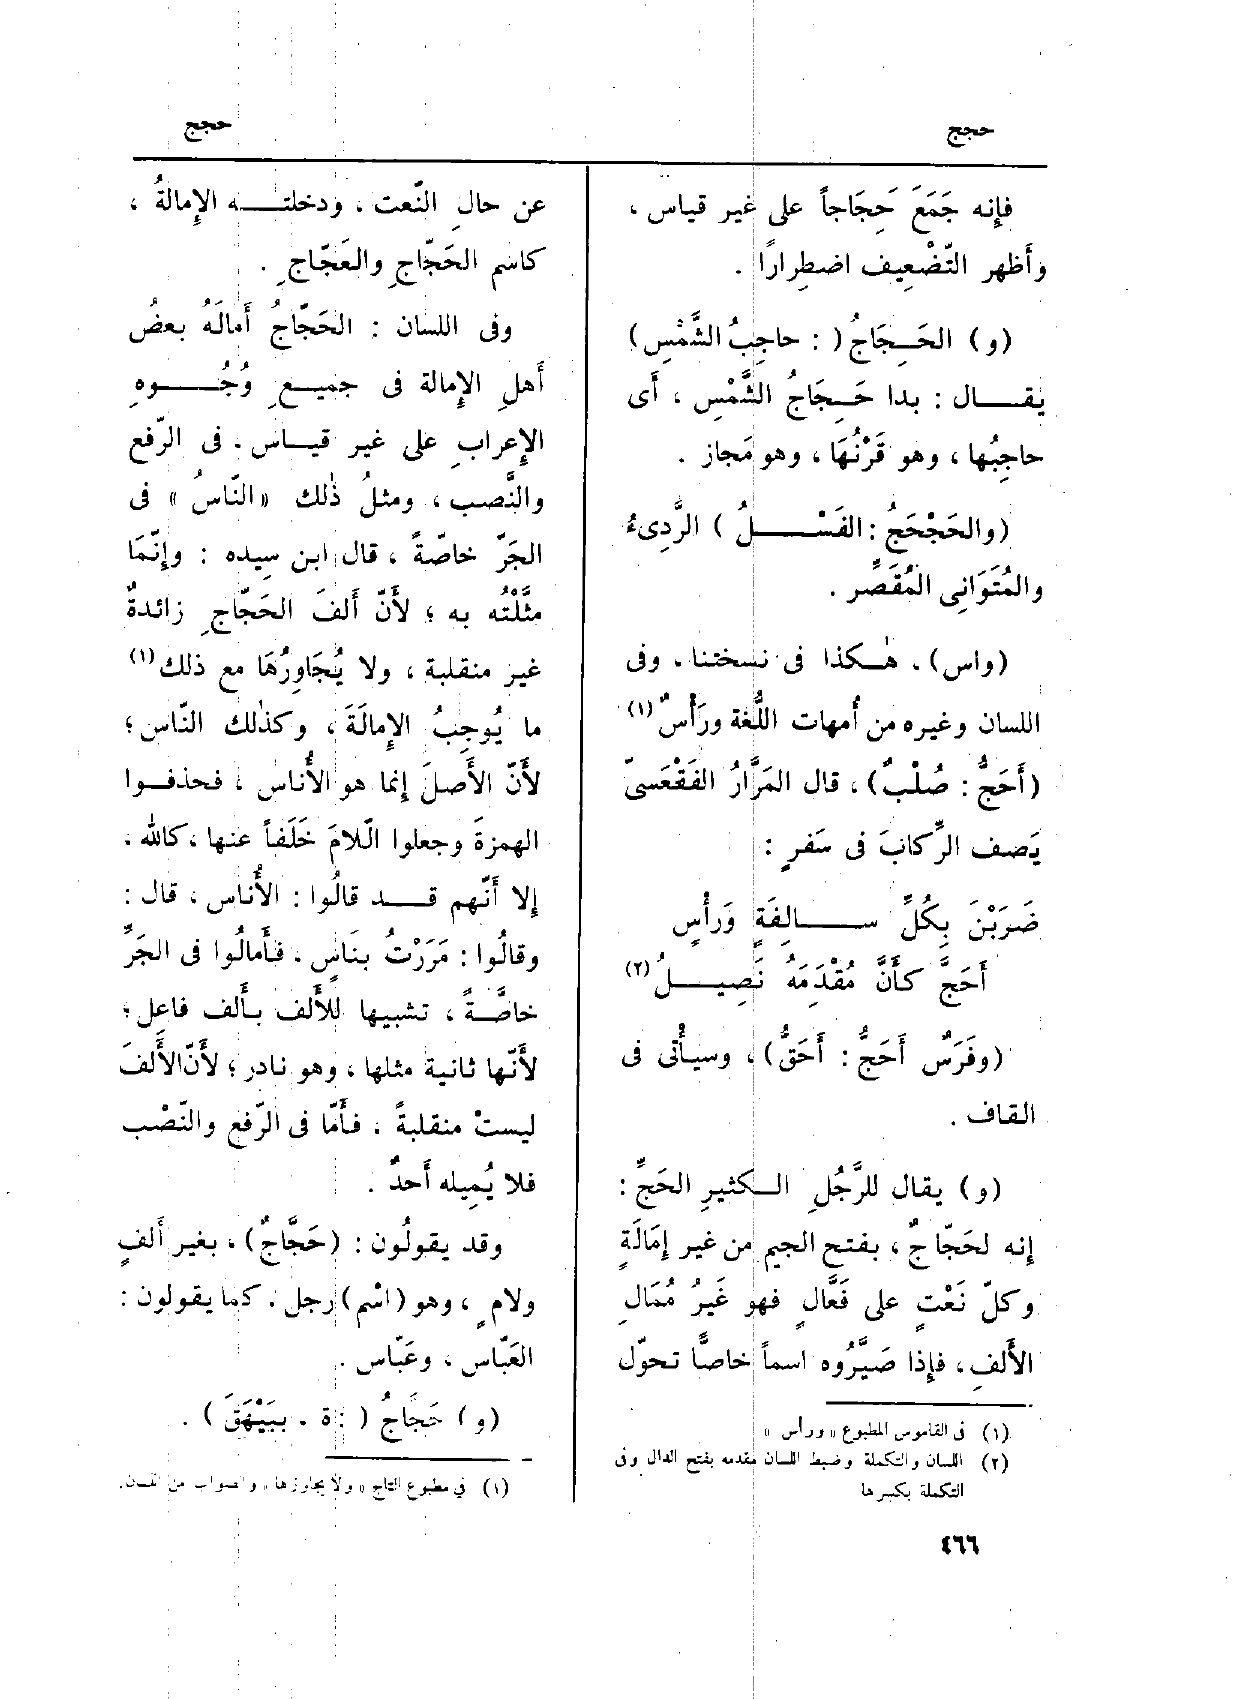 حجج
حجج
فإنه جَمَعَ حَِجَاجاً على غير قياس ،
وأظهر التّضْعِيف اضطِرارًا .
(و) الحَِجَاجُ ( : حاجِبُ الشَّمْسِ)
يقال : بدا حَِجَاجُ الشَّمْسِ ، أَى
حاجِبُها ، وهو قَرْنُهَا ، وهو مَجاز .
(والحَجْحَجُ : الفَسْلُ ) الرَّدِىءُ
والمُتَوَانِى المُقَصِّر .
(واس) . هٰكذا فى نسختنا . وفى
اللسان وغيره من أُمهات اللُّغة ورَأْسٌ (١)
(أَحَجُّ : صُلْبٌ) ، قال المَرَّارُ الفَقْعَسىّ
يَصف الرِّكابَ فى سَفرٍ :
ضَرَبْنَ بِكُلِّ سالِفَةٍ وَرأْسٍ
أَحَجَّ كأَنَّ مُقْدَمَهُ نَصِيلُ (٢)
(وفَرَسٌ أَحَجُّ : أَحَقُّ) ، وسيأْتى فى
القاف .
(و) يقال للرَّجُلِ الكثيرِ الحَجِّ :
إنه لحَجّاجٌ ، بفتح الجيم من غير إِمَالَةٍ
وكلّ نَعْتٍ على فَعَّالٍ فهو غَيرُ مُمَالِ
الأَلفِ ، فإِذا صَيَّرُوه اسماً خاصًّا تحوّل
(١) فى القاموس المطبوع « ورأس »
(٢) اللسان والتكملة وضبط اللسان مقدمه بفتح الدال وفى
التكملة بكسرها
عن حالِ النَّعت ، ودخلته الإِمالةُ ،
كاسْمِ الحَجّاجِ والعَجّاجِ .
وفى اللسان : الحَجّاجُ أَمالَهُ بعضُ
أَهلِ الإِمالة فى جميعِ وُجُوهِ
الإِعرابِ على غير قياس . فى الرّفع
والنَّصب ، ومثلُ ذٰلك « النَّاسُ » فى
الجَرّ خاصّةً ، قال ابن سِيده : وإِنّمَا
مثَّلْتُه به ؛ لأَنّ أَلفَ الحَجّاجِ زائدةٌ
غير منقلبة ، ولا يُجَاوِرُهَا مع ذلك (١)
ما يُوجِبُ الإِمالَةَ ، وكذٰلك النّاس ؛
لأَنّ الأَصلَ إنما هو الأُناس ، فحذفوا
الهمزةَ وجعلوا الّلامَ خَلَفاً عنها ، كاللّه .
إلا أَنّهم قد قالُوا : الأُناس ، قال :
وقالُوا : مَرَرْتُ بنَاسٍ . فأَمالُوا فى الجَرِّ
خاصَّةً ، تشبيها للأَلف بأَلف فاعِل ؛
لأَنّها ثانية مثلها ، وهو نادر ؛ لأَنّ الأَلفَ
ليستْ منقلبةً . فأَمّا فى الرّفع والنّصْب
فلا يُمِيله أَحدٌ .
وقد يقولُون : (حَجَّاجٌ) ، بغير أَلفٍ
ولام ٍ ، وهو (اسْم) رجل . كما يقولون :
العَبّاس ، وعَبّاس .
(و) حَجَاجُ ( : ة . ببَيْهَقَ ) .
(١) فى مطبوع التاج « ولا يجاوزها » والصواب من اللسان.
٤٦٦